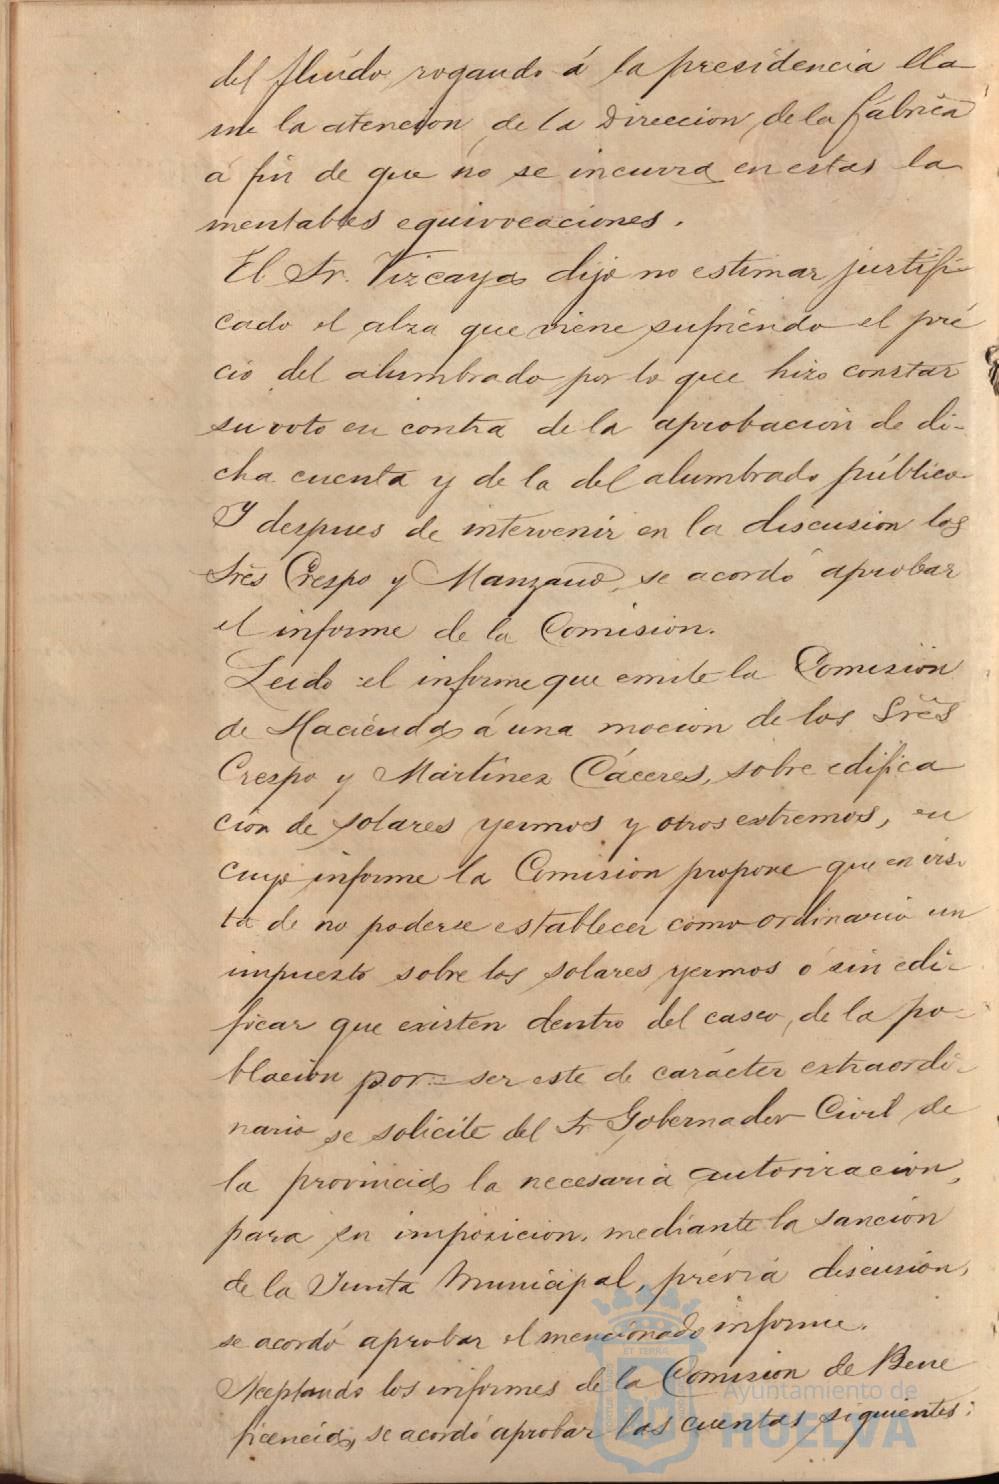 del fluído, rogando á la presidencia lla
me la atencion de la Direccion de la fábrica
á fin de que no se incurra en estas la
mentables equivocaciones.
El Sr. Vizcaya dijo no estimar justifi-
cado el alza que viene sufriendo el pré
cio del alumbrado por lo que hizo constar
su voto en contra de la aprobacion de di-
cha cuenta y de la del alumbrado público.
Y despues de intervenir en la discusion los
Sres Crespo y Manzano, se acordó aprobar
el informe de la Comision.
Leido el informe que emite la Comision
de Haciénda á una mocion de los Sres
Crespo y Martínez Cáceres, sobre edifica
ción de solares yermos y otros extremos, en
cuyo informe la Comision propone que en vis-
ta de no poderse establecer como ordinario un
impuesto sobre los solares yermos ó sin edi-
ficar que existen dentro del casco, de la po-
blacion por ser este de carácter extraordi-
nario se solicite del Sr Gobernador Civil de
la provincia la necesaria autorizacion,
para su imposicion, mediante la sanción
de la Junta Municipal, prévia discusion,
se acordó aprobar el mencionado informe.
Aceptando los informes de la Comision de Bene
ficencia, se acordó aprobar las cuentas siguientes:
ET TERRÆ
Ayuntamiento de
HUELVA